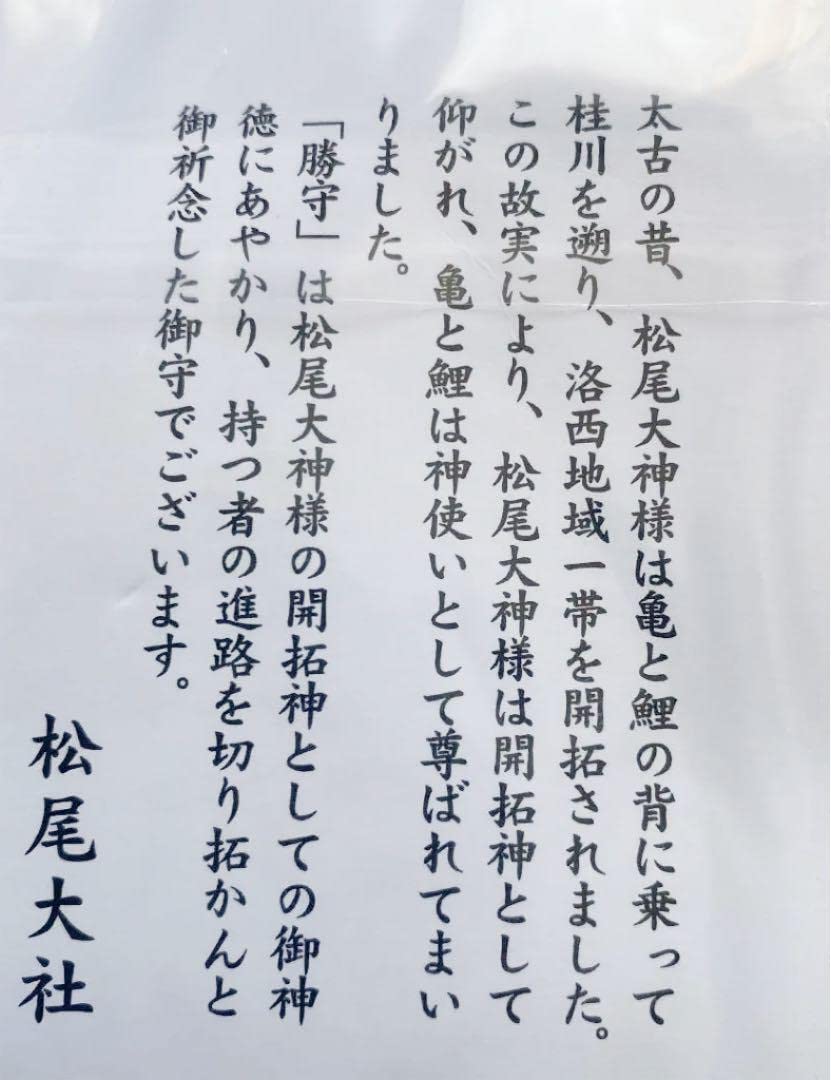 太古の昔、松尾大神様は亀と鯉の背に乗って
桂川を遡り、洛西地域一帯を開拓されました。
この故実により、松尾大神様は開拓神として
仰がれ、亀と鯉は神使いとして尊ばれてまい
りました。
「勝守」は松尾大神様の開拓神としての御神
徳にあやかり、持つ者の進路を切り拓かんと
御祈念した御守でございます。
松尾大社